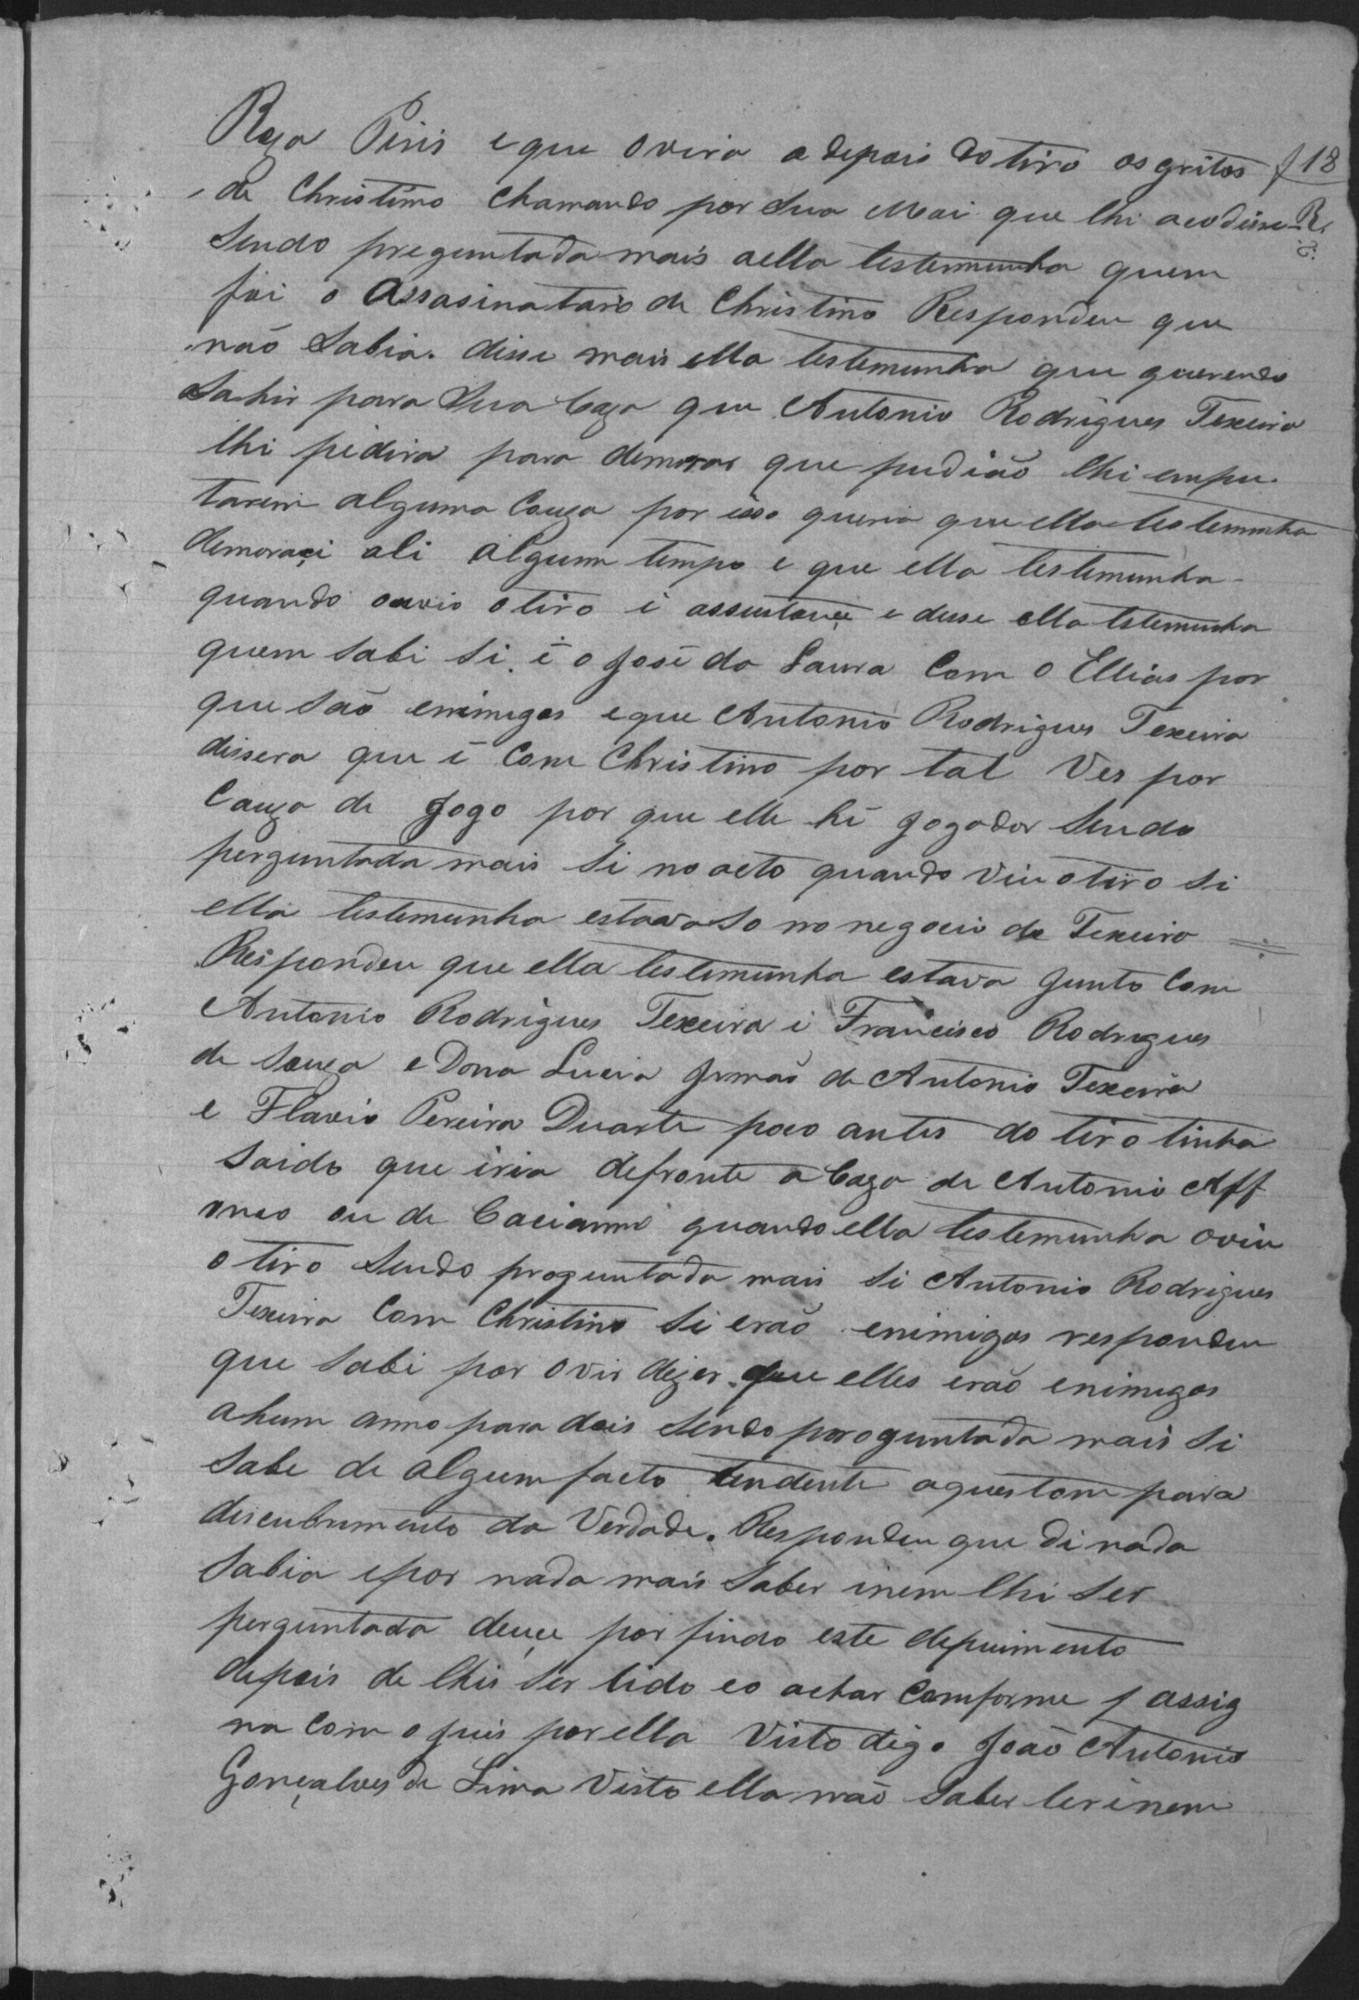 Roza Piris e que ovira a depois do tiro os gritos f 18
de Christino chamando por sua Mai que lhi acodisse R.
Sendo preguntada mais a ella testemunha quem
foi o Assasinatario de Christino Respondeu que
não Sabia. disse mais ella testemunha que querendo
Sahir para Sua Caza que Antonio Rodrigues Texeira
lhi pidira para demorar que pudião lhi empu
tarem alguma Couza por isso queria que ella testemunha
demoraci ali algum tempo e que ella testemunha
quando ouvio o tiro i assustouce e disse ella testemunha
quem sabi si é o José da Laura Com o Ellias por
que são enimigos e que Antonio Rodrigues Texeira
dissera que é Com Christino por tal Ves por
Cauza de Jogo por que elle hé Jogador Sendo
perguntada mais Si no acto quando viu o tiro Si
ella testemunha estava So no negocio de Texeira
Respondeu que ella testemunha estava Junto Com
Antonio Rodrigues Texeira i Francisco Rodrigues
de Souza e Dona Lucia Jrmaã de Antonio Texeira
e Flavio Pereira Duarte poco antes do tiro tinha
Saido que iria defronte a Caza de Antonio Aff
onco ou de Cacianno quando ella testemunha oviu
o tiro Sendo proguntada mais Si Antonio Rodrigues
Texeira Com Christino Si erão enimigos respondeu
que Sabi por ovir dizer que elles erão enimigos
a hum anno para dois Sendo proguntada mais Si
Sabe de algum facto tendente a questom para
discubrumento da Verdade. Respondeu que di nada
Sabia e por nada mais Saber inem lhi Ser
perguntada deuce por findo este depuimento
depois de lhis Ser lido eo achar Comforme f assig
na Com o juis por ella Visto digo João Antonio
Gonçalves de Lima Visto ella não Saber ler inem